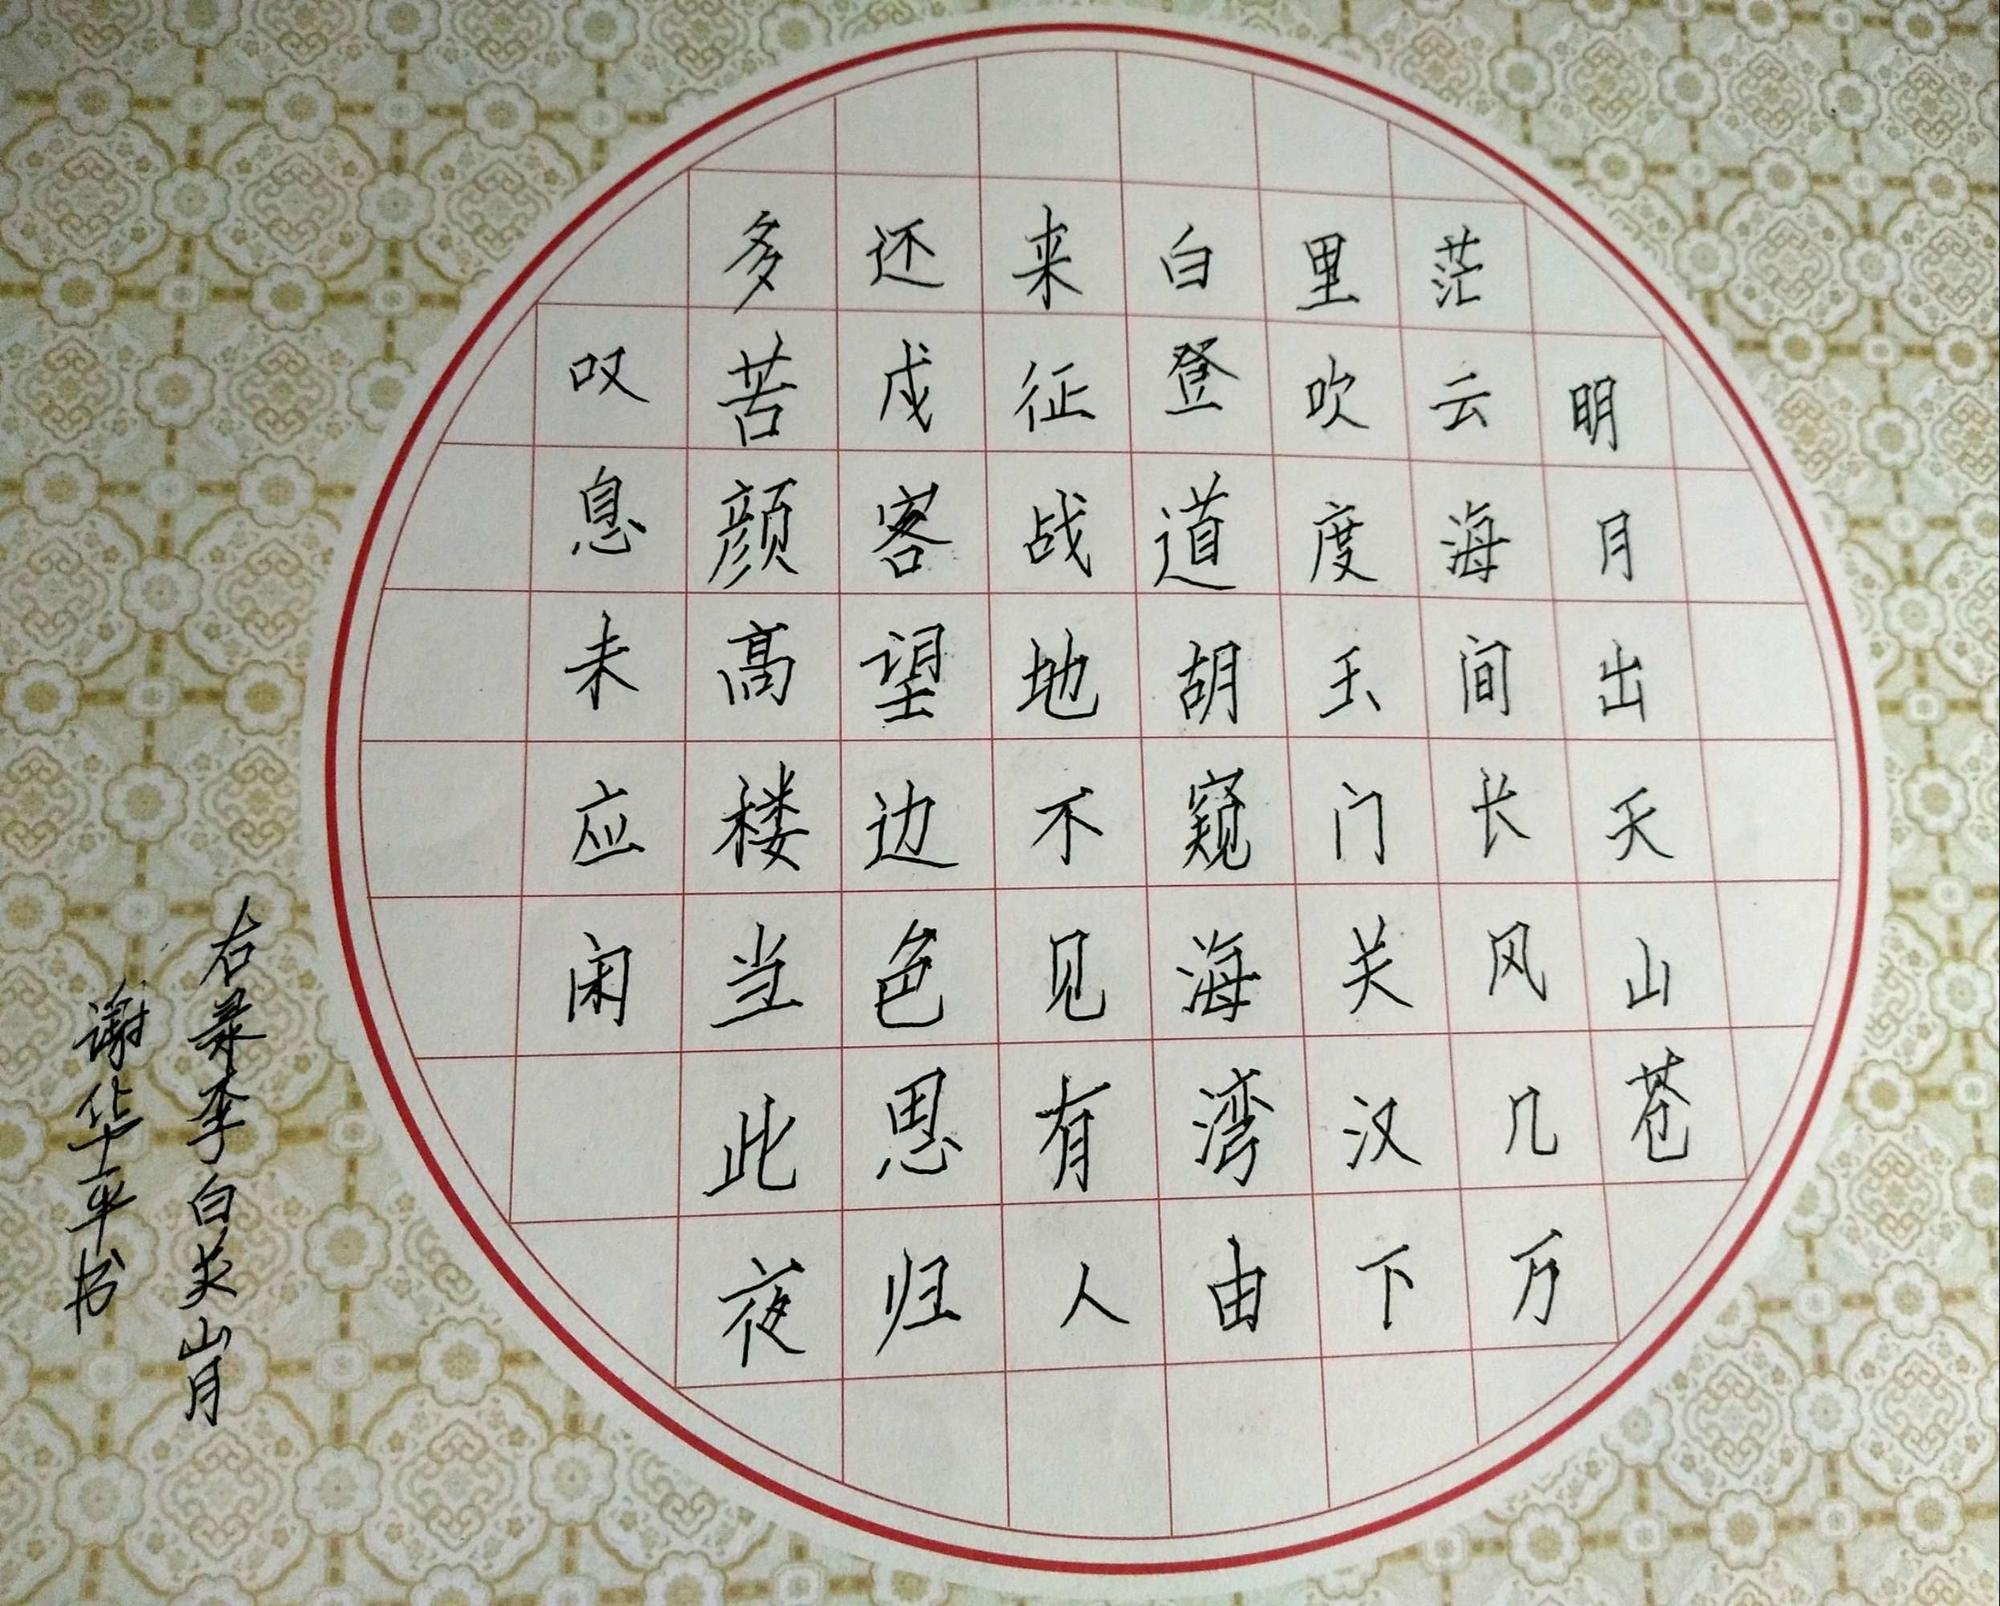 明月出天山苍
茫云海间长风几万
里吹度玉门关汉下
白登道胡窥海湾由
来征战地不见有人
还戍客望边色思归
多苦颜高楼当此夜
叹息未应闲
右录李白关山月
谢华平书